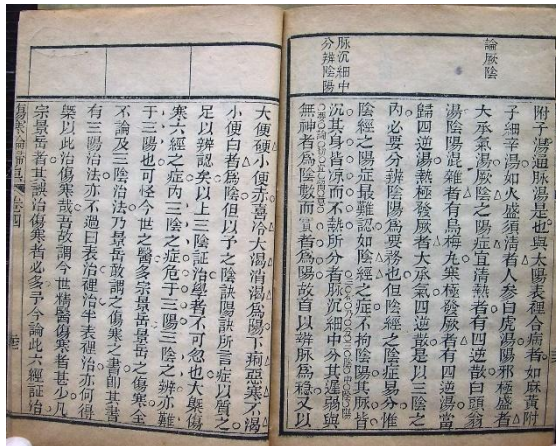 論厥陰
脉沉細中
分辨陰陽
附子湯通脉湯是也與太陽表裡合病者如麻黃附
子細辛湯如火盛須清者人参白虎湯陽邪極盛者
大承氣湯厥陰之陽症宜清熱者有四逆散白頭翁
湯陰陽混雜者有烏梅丸寒極發厥者有四逆湯當
歸四逆湯熱極發厥者大承氣四逆散是以三陰之
內必要分辨陰陽爲要務也但陰經之陰症易分惟
陰經之陽症最難認如陰經之症不拘陰陽其脉皆
沉其身皆凉而不熱所分者脉沉細中分其遲弱與
無神者爲陰數而實者爲陽故首以辨脉爲穩又以
大便硬小便赤喜冷大渴消渴爲陽下痢惡寒不渴
小便白者爲陰但以予之陰訣陽訣所言症以質之
足以辨認矣以上三陰証治學者不可忽也大槩傷
寒六經之症內三陰之症危于三陽三陰之辨亦難
于三陽也可怪今世之醫多宗景岳景岳之傷寒全
不論及三陰治法乃景岳故謂之傷寒之書即其書
有三陽治法亦不過曰表治裡治半表裡治亦何得
槩以此治傷寒哉吾故謂今世精醫傷寒者甚少凡
宗景岳者其誤治傷寒者必多予今論此六經証治
傷寒論歸真 卷四